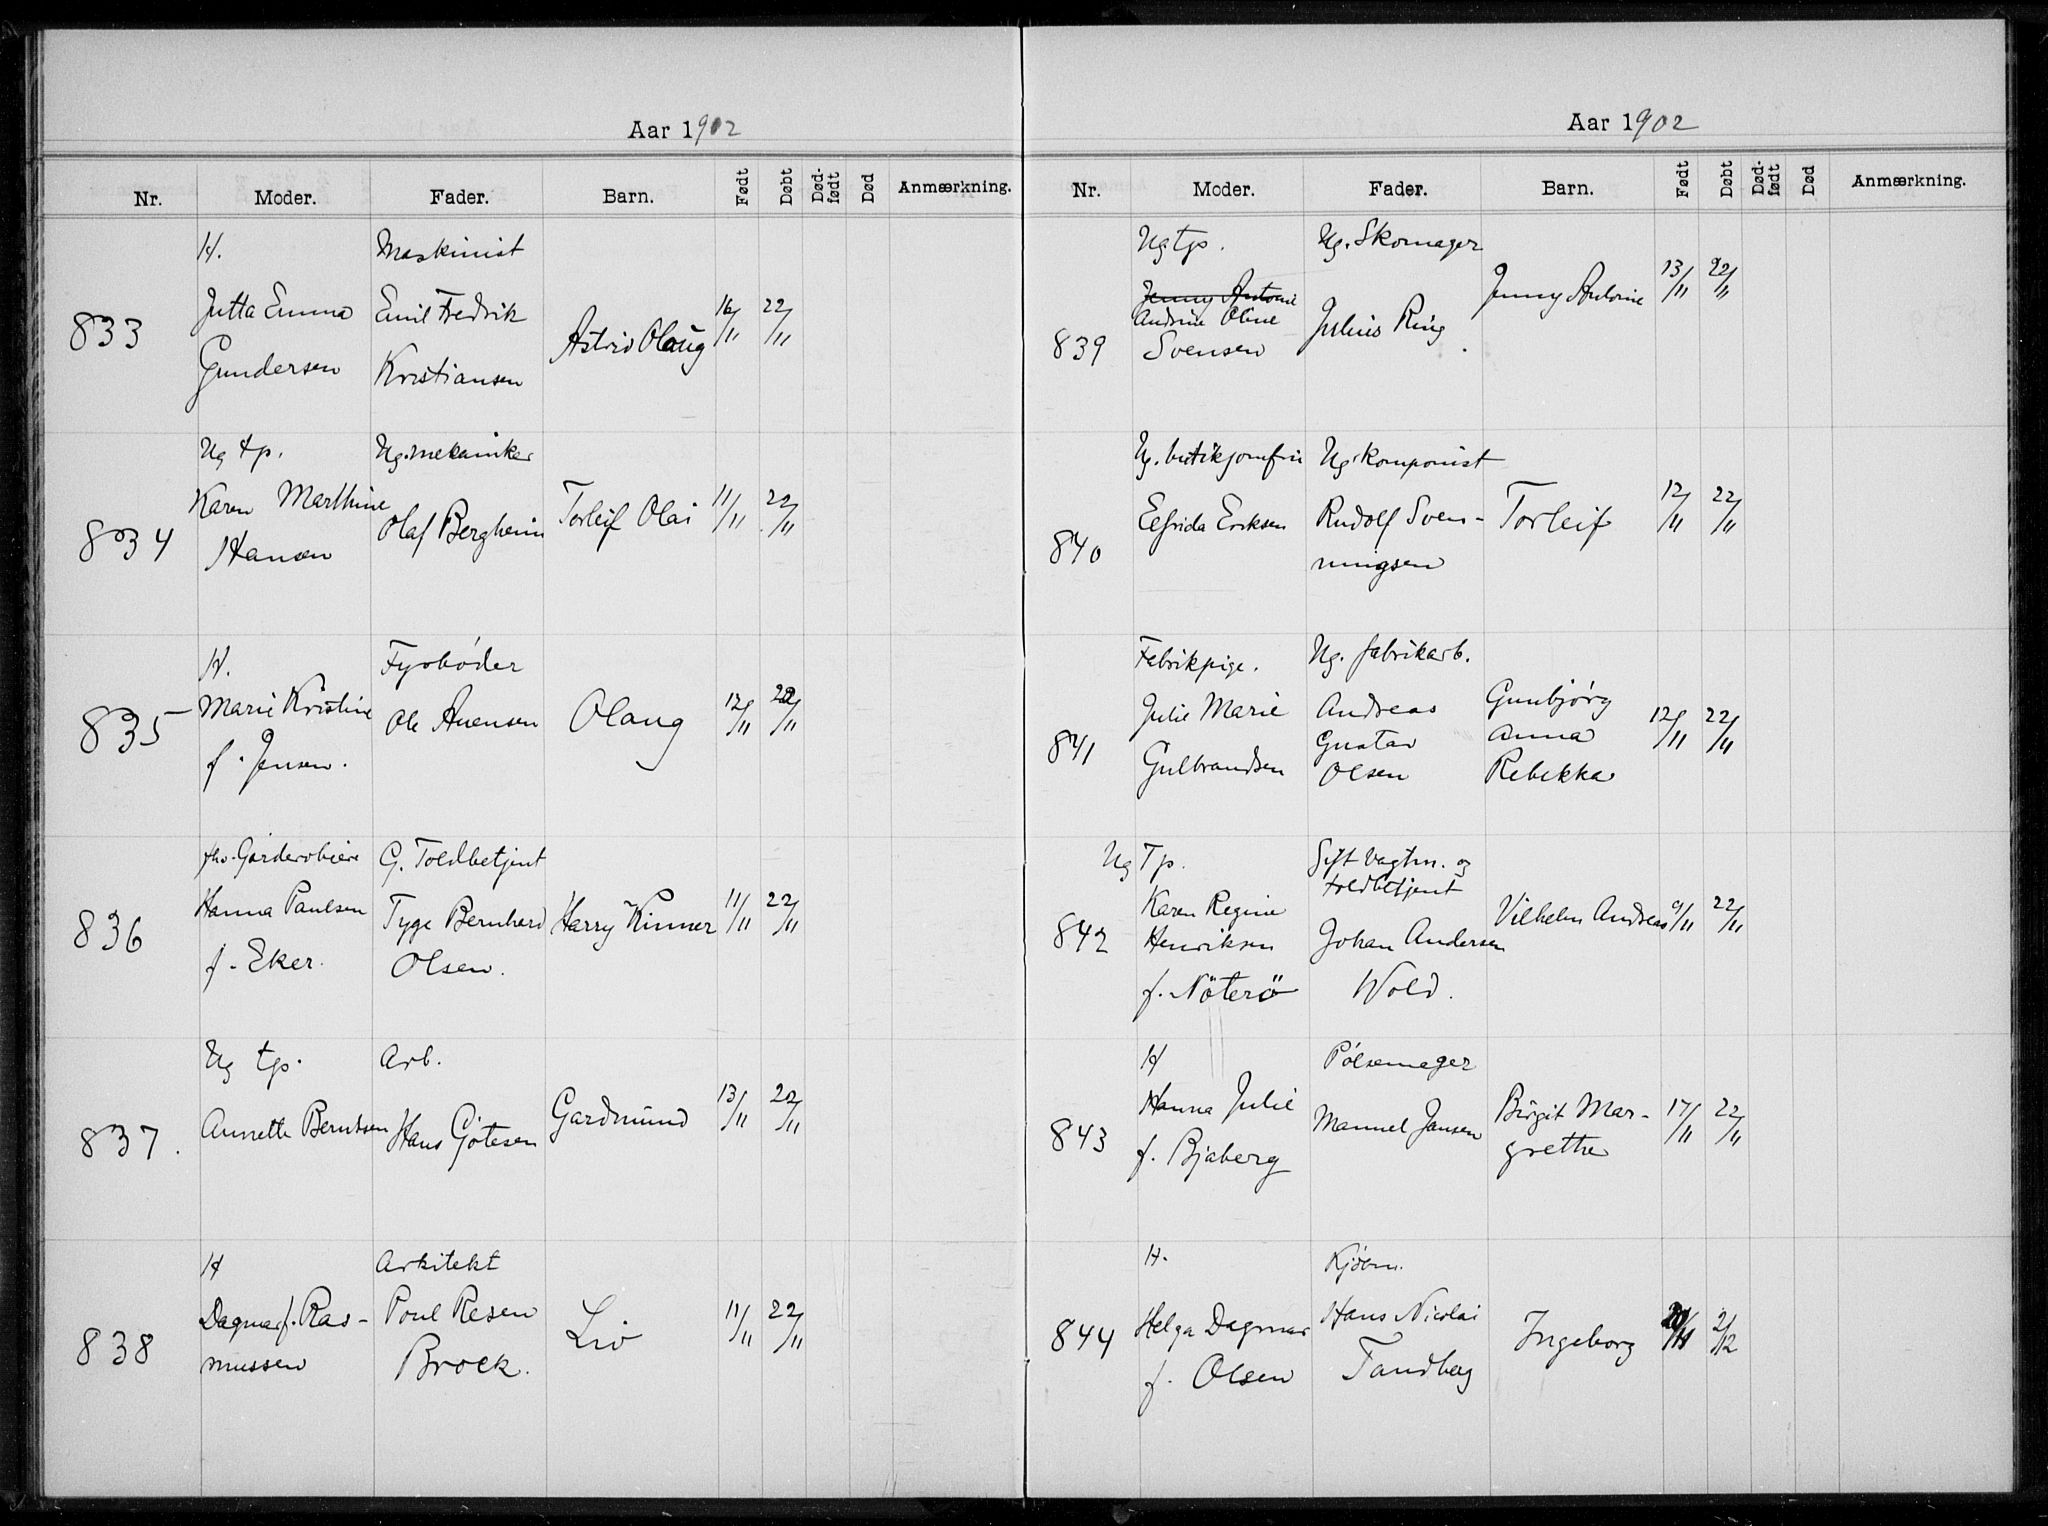 Aar 1902
Nr. Moder. Fader. Barn. Født Døbt Død-født Død Anmærkning.
833
H.
Jutta Emma
Gundersen
Maskinist
Emil Fredrik
Kristiansen
Astrid Olaug
16/11 22/11
834
Ug tp.
Karen Marthine
Hansen
Ug. mekaniker
Olaf Bergheim
Torleif Olai
11/11 22/11
835
H.
Marie Kristine
f. Jensen.
Fyrbøder
Ole Auensen
Olaug
12/11 22/11
836
fhv. Garderobiere
Hanna Paulsen
f. Eker.
G. Toldbetjent
Tyge Bernhard
Olsen.
Harry Kinner
11/11 22/11
837.
Ug tp.
Annette Berntsen
Arb.
Hans Gøtesen
Gardmund
13/11 22/11
838
H
Dagmar f. Ras-
mussen
Arkitekt
Poul Resen
Broek.
Liv
11/11 22/11
Aar 1902
Nr. Moder. Fader. Barn. Født Døbt Død-født Død Anmærkning.
839
Ug tp.
Jenny Antonie
Andrine Oline
Svensen
Ug. Skomager
Julius Ring
Jenny Antonie
13/11 22/11
840
Ug. butikjomfru
Elfrida Eriksen
Ug. komponist
Rudolf Sven-
ningsen
Torleif
12/11 22/11
841
Fabrikpige.
Julie Marie
Gulbrandsen
Ug. fabrikarb.
Andreas
Gustav
Olsen
Gunbjørg
Anna
Rebekka
12/11 22/11
842
Ug Tp.
Karen Regine
Henriksen
f. Nöterö
Gift Vagtm. og
toldbetjent
Johan Andersen
Wold.
Vilhelm Andreas
9/11 22/11
843
H
Hanna Julie
f. Bjaberg
Pølsemager
Manuel Jansen
Birgit Mar-
grethe
17/11 22/11
844
H.
Helga Dagmar
f. Olsen
Kjøbm.
Hans Nicolai
Tandberg
Ingeborg
2/12